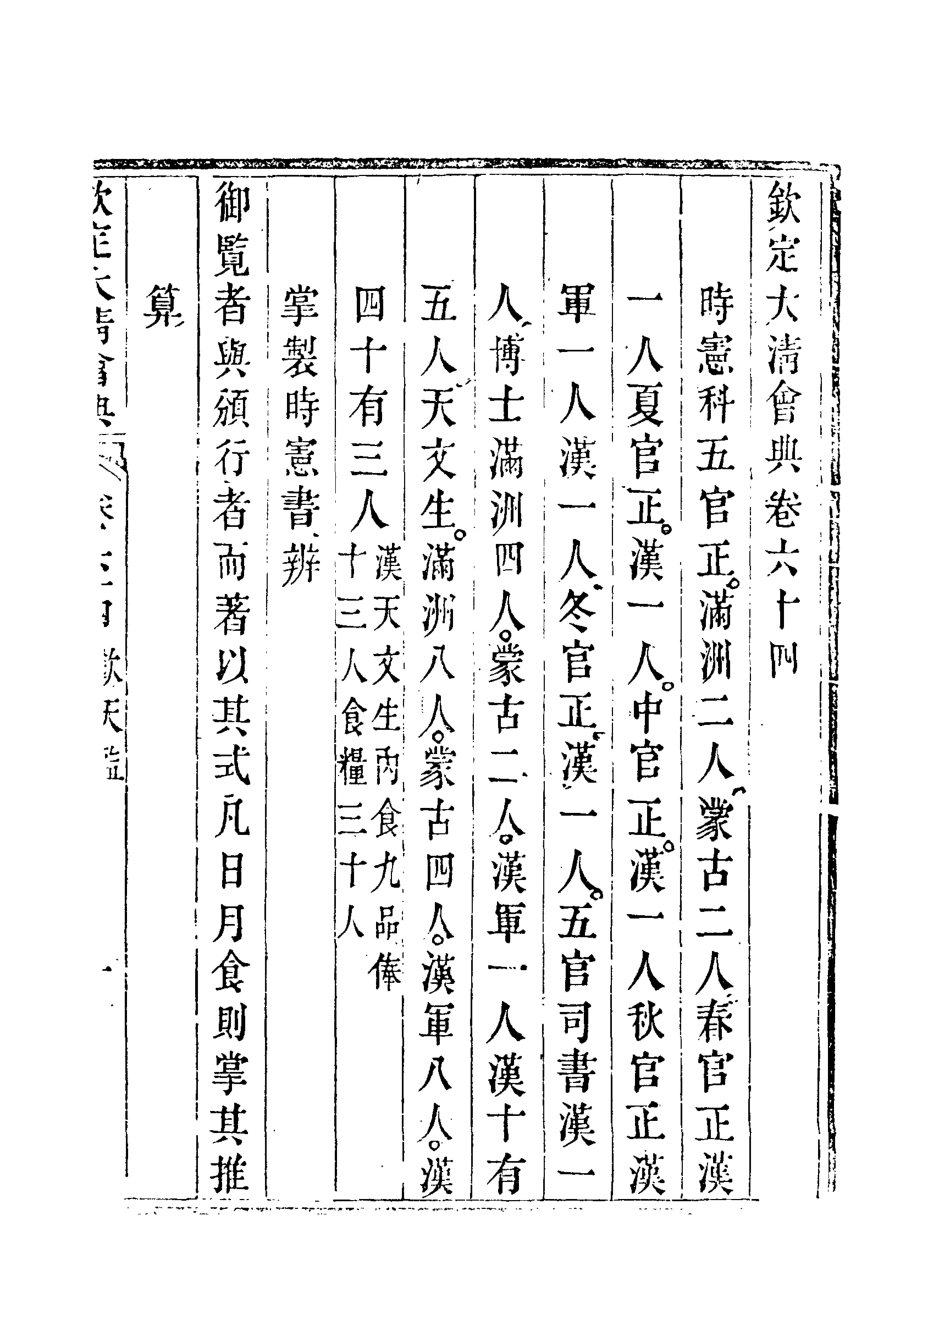 欽定大清會典卷六十四
時憲科五官正。滿洲二人、蒙古二人春官正漢
一人夏官正。漢一人。中官正。漢一人秋官正漢
軍一人漢一人、冬官正、漢一人。五官司書漢一
人、博士滿洲四人。蒙古二人。漢軍一人漢十有
五人天文生。滿洲八人。蒙古四人。漢軍八人。漢
四十有三人漢天文生內食九品俸
十三人食糧三十人
掌製時憲書、辨
御覽者與頒行者而著以其式凡日月食則掌其推
算
欽定大清會典 卷六十四 欽天監 一